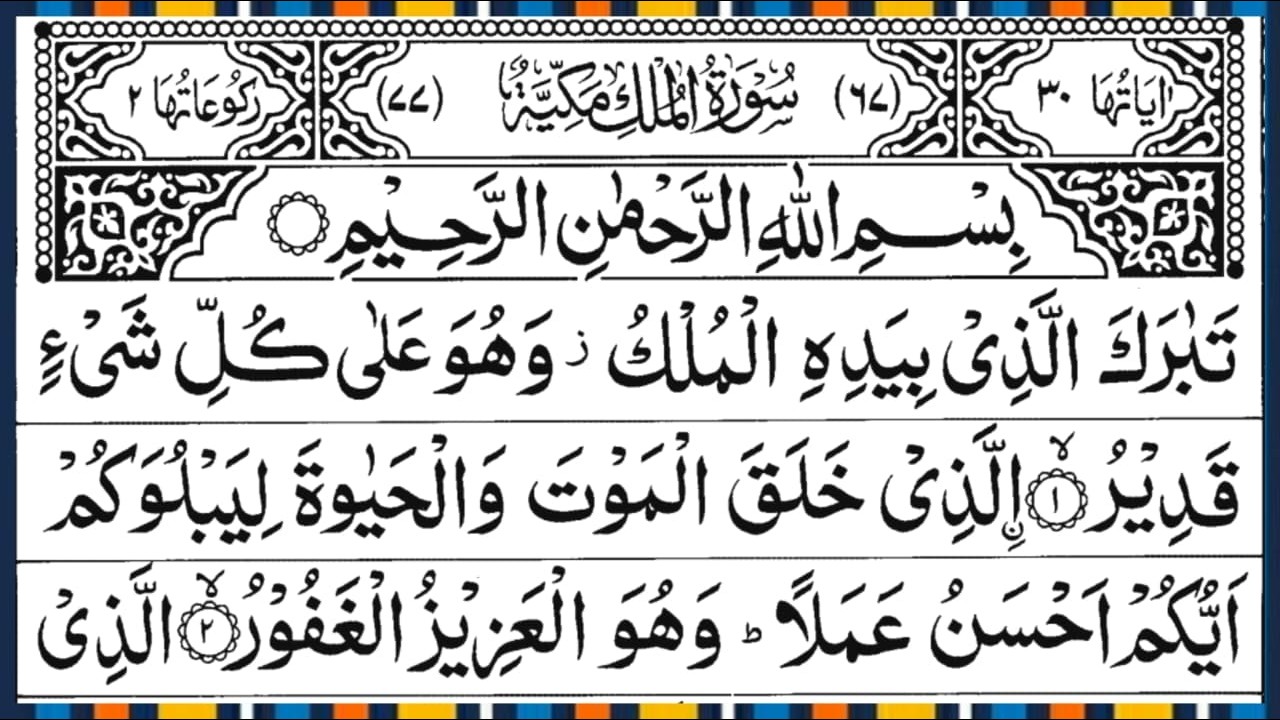 اٰيَاتُهَا ٣٠ (٦٧) سُوْرَةُ الْمُلْكِ مَكِّيَّةٌ (٧٧) رُكُوْعَاتُهَا ٢
بِسْمِ اللّٰهِ الرَّحْمٰنِ الرَّحِيْمِ
تَبٰرَكَ الَّذِىْ بِيَدِهِ الْمُلْكُ ز وَهُوَ عَلٰى كُلِّ شَىْءٍ
قَدِيْرُ ۙ﴿١﴾ ۨالَّذِىْ خَلَقَ الْمَوْتَ وَالْحَيٰوةَ لِيَبْلُوَكُمْ
اَيُّكُمْ اَحْسَنُ عَمَلًا ؕ وَهُوَ الْعَزِيْزُ الْغَفُوْرُ ۙ﴿٢﴾ الَّذِىْ